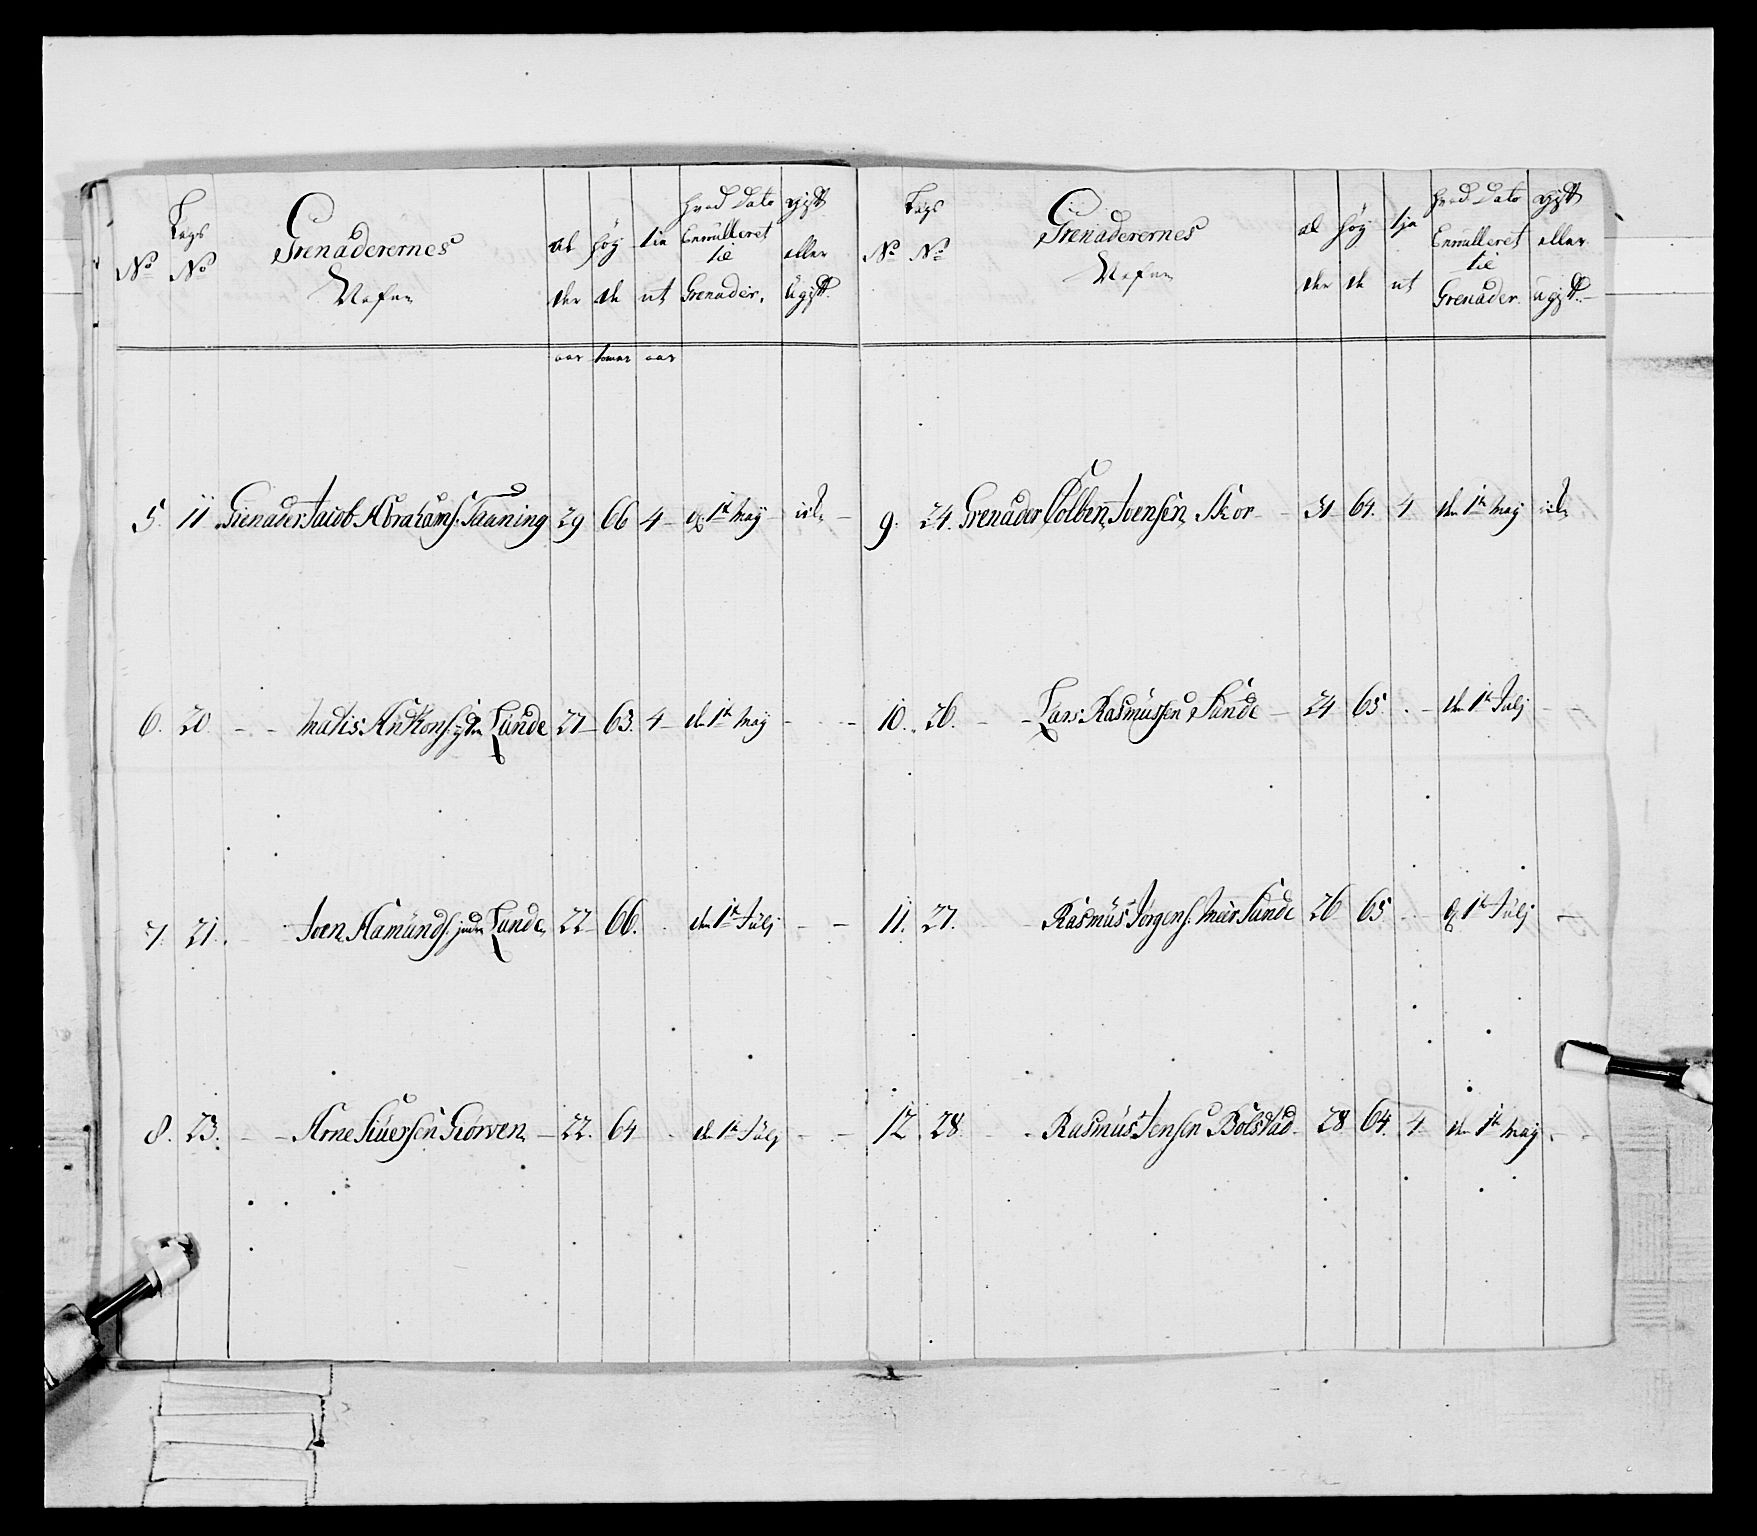 No Lægs No Grenaderernes Nafne al der höy de tie nt hvad Dato Enrulleret til Grenader. gift eller ugift.
aar tomer aar
5. 11 Grenader Jacob Abrahams. Taaning 29 66 4 d. 1te May
6. 20. - - Matis Andersons. Lunde 27 63. 4 den 1te May - -
7. 21. - Joen Aamunds. Lunde 22 66. den 1te Julj - -
8. 23. - - Arne Siversen Giørven 22. 64 den 1te Julj - -
No Lægs No Grenaderernes Nafne al der höy de tje nt hvad Dato Enrulleret til Grenader. gift eller ugift.
9. 24. Grenader Colben Joensen Skor 31 64. 4 den 1te May
10. 26. - - Lars Rasmussen Sunde 24 65. - den 1te Julj - -
11. 27. - Rasmus Jørgens. Sunde 26 65 - d. 1te Julj -
12. 28 - - Rasmus Jensen Bolstad 28 64. 4 den 1te May - -